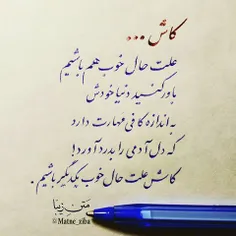 کاش ...
علت حال خوب هم باشیم
باور کنید دنیا خودش
به اندازه کافی مهارت دارد
که دل آدمی را بدرد آورد!
کاش علت حال خوب یکدیگر باشیم.
متن زیبا
@Matne_ziba